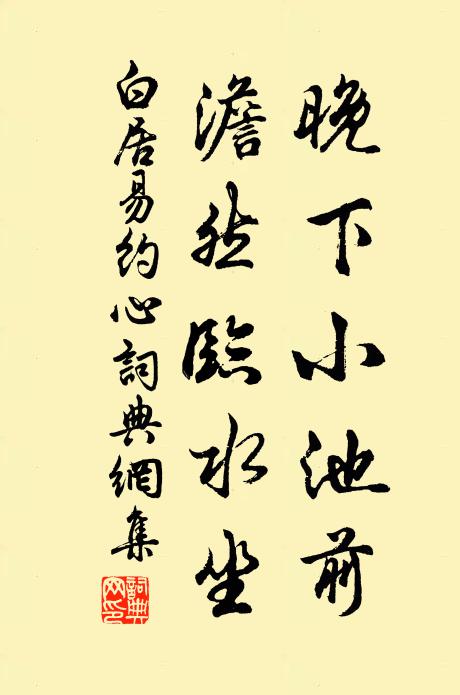 晚下小池前
澹然臨水坐
白居易約心詞典網集
詞典網印